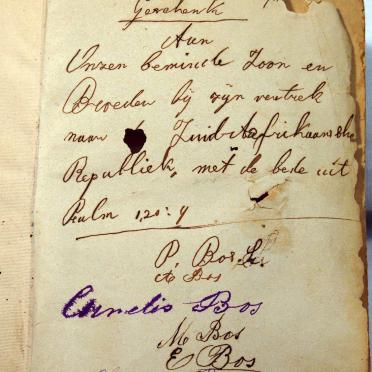 Geschenk
Aan
Onzen beminde Zoon en
Broeder bij zijn vertrek
naar Zuid Afrikaansche
Republiek, met de bede uit
Psalm 120:
P. Bos Sr.
A Bos
Cornelis Bos
M Bos
E Bos